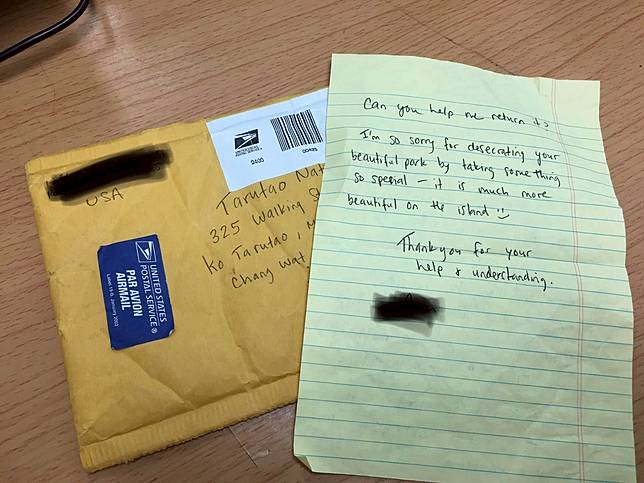 USA
UNITED STATES
POSTAL SERVICE®
PAR AVION
AIRMAIL
Label 19-B, January 2003
UNITED STATES
POSTAL SERVICE
0400
Tarutao Nat
325 Walking S
Ko Tarutao, M
Chang Wat
Can you help me return it?
I'm so sorry for desecrating your
beautiful park by taking something
so special – it is much more
beautiful on the island
Thank you for your
help & understanding.